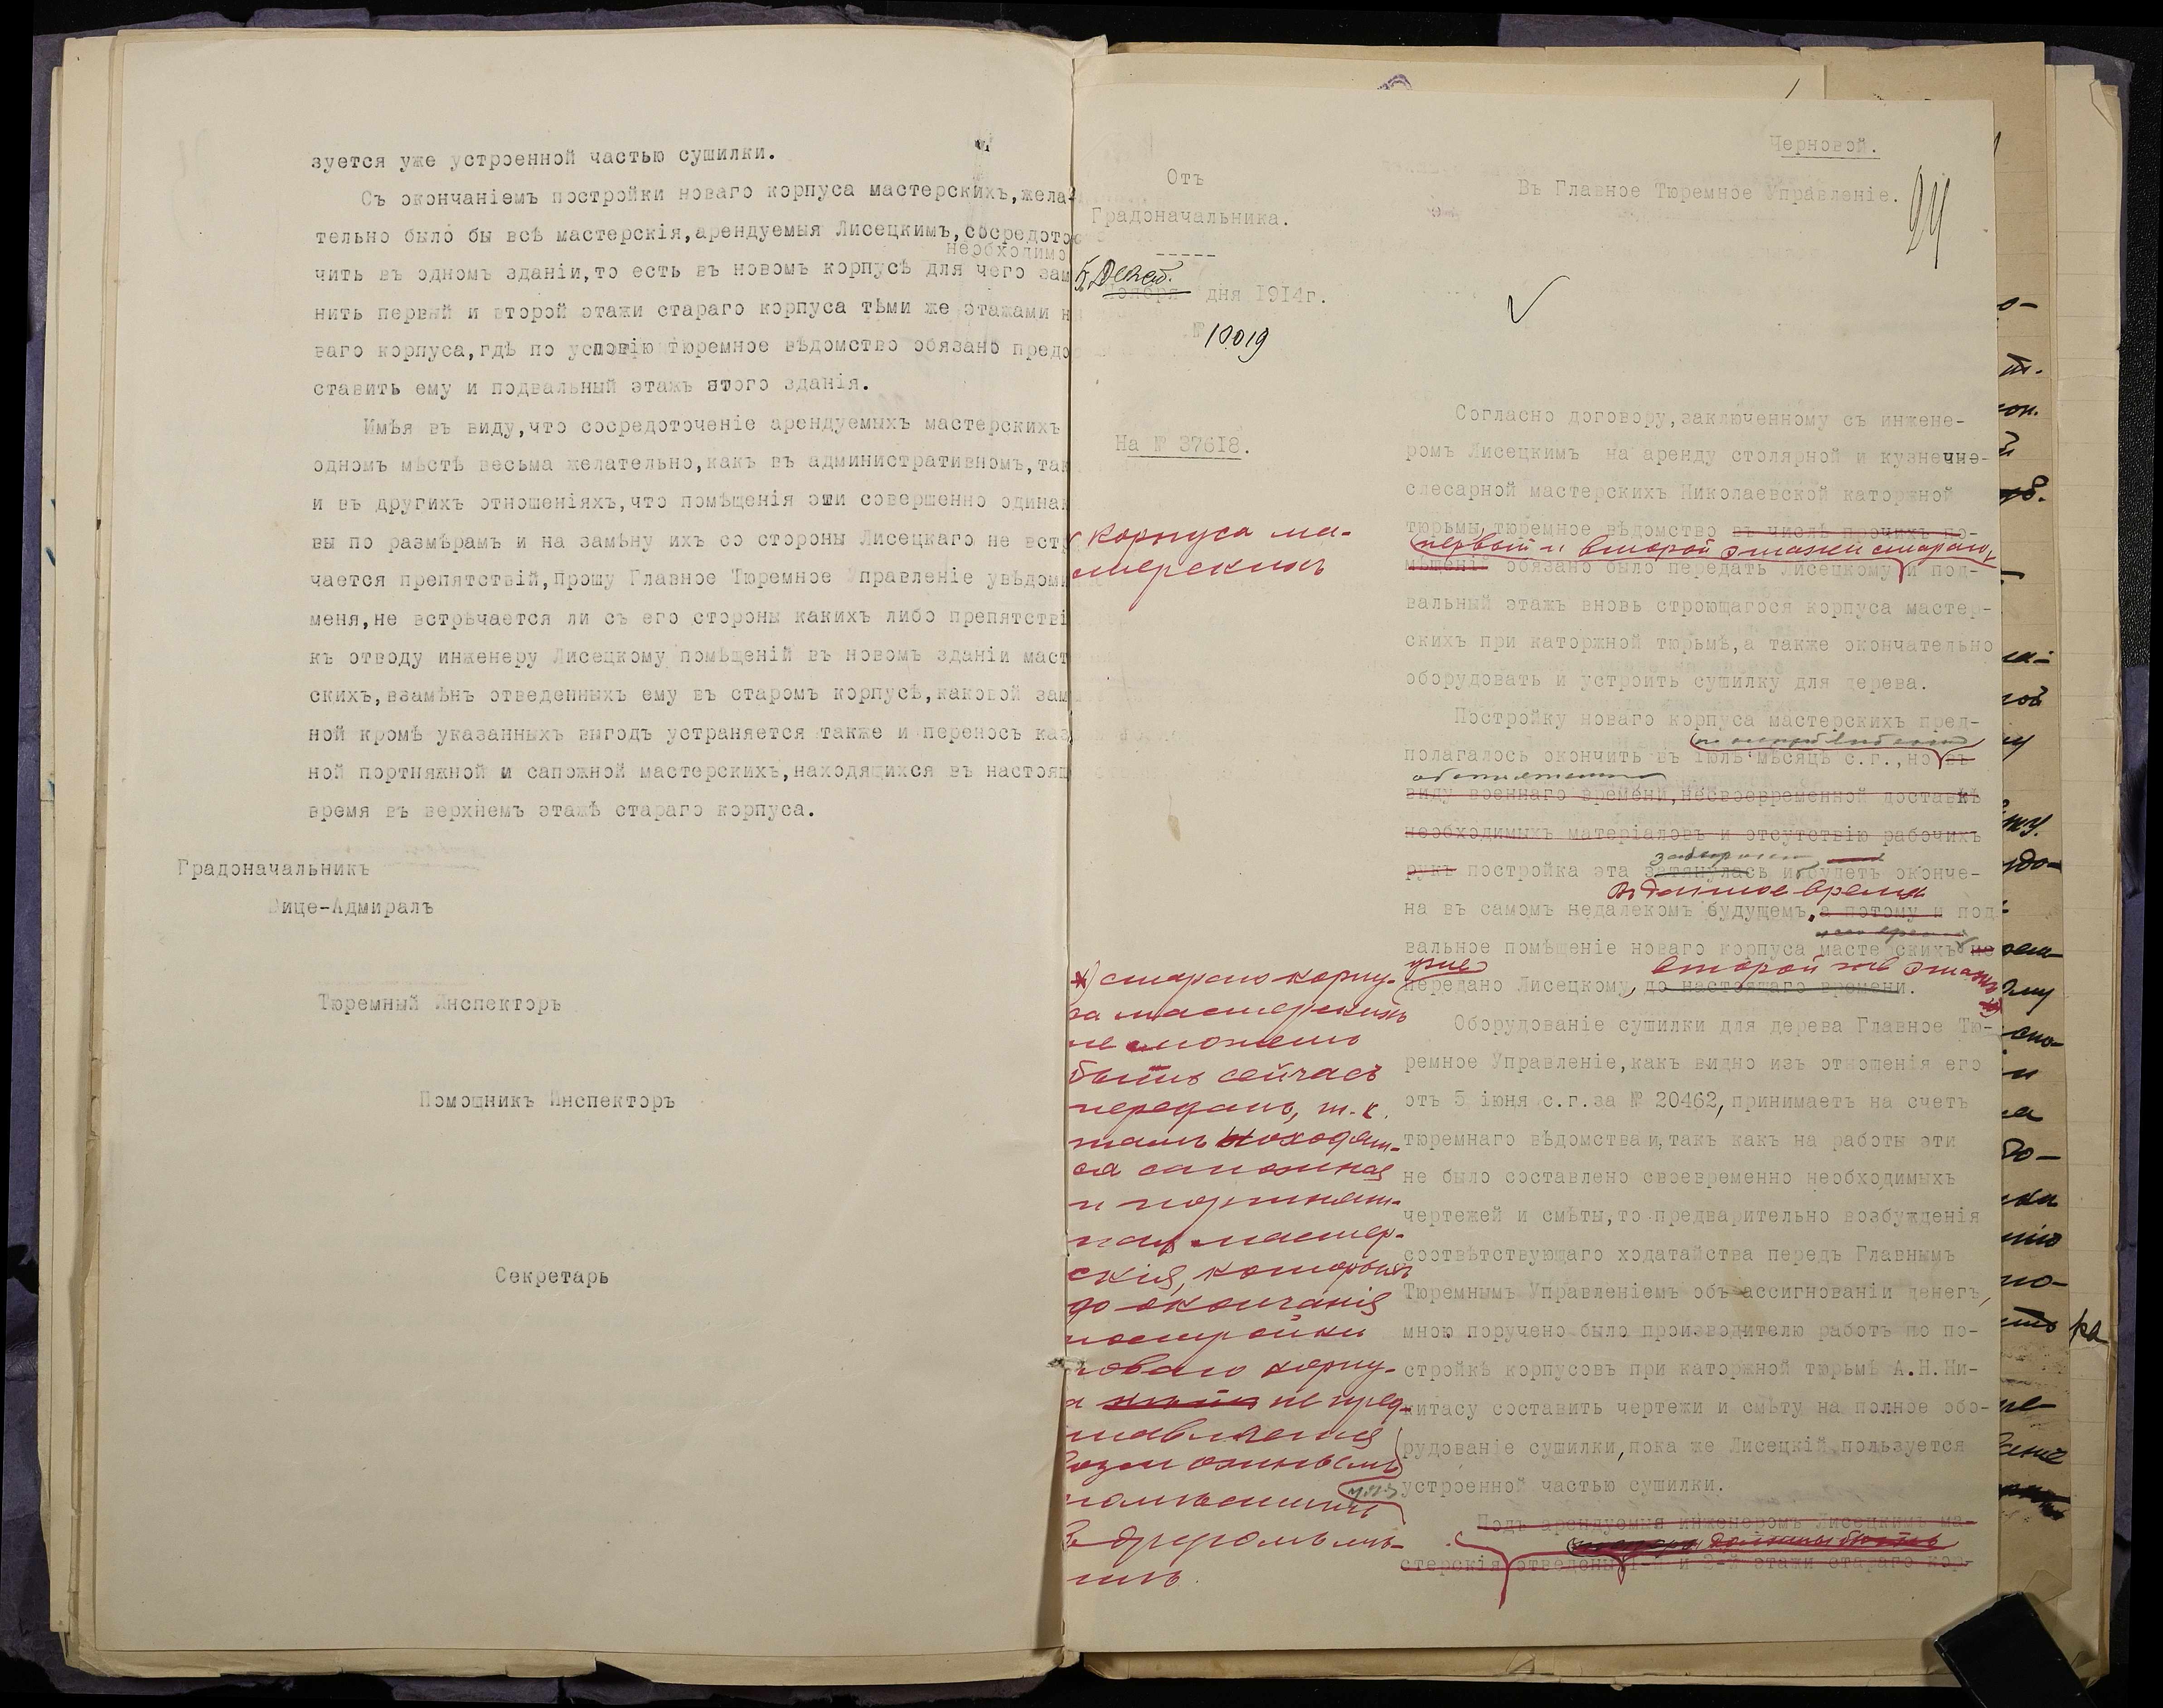 зуется уже устроенной частью сушилки.
Съ окончаніемъ постройки новаго корпуса мастерскихъ,жела-
тельно было бы всѣ мастерскія,арендуемыя Лисецкимъ,сосредото
необходимо
чить въ одномъ зданіи,то есть въ новомъ корпусѣ для чего зам
нить первый и второй этажи стараго корпуса тѣми же этажами н
ваго корпуса,гдѣ по условію тюремное вѣдомство обязано предо
ставить ему и подвальный этажъ этого зданія.
Имѣя въ виду,что сосредоточеніе арендуемыхъ мастерскихъ
одномъ мѣстѣ весьма желательно,какъ въ административномъ,так
и въ другихъ отношеніяхъ,что помѣщенія эти совершенно одинак
вы по размѣрамъ и на замѣну ихъ со стороны Лисецкаго не встр
чается препятствій,Прошу Главное Тюремное Управленіе увѣдоми
меня,не встрѣчается ли съ его стороны какихъ либо препятстві
къ отводу инженеру Лисецкому помѣщеній въ новомъ зданіи маст
скихъ,взамѣнъ отведенныхъ ему въ старомъ корпусѣ,каковой зам
ной кромѣ указанныхъ выгодъ устраняется также и переносъ каз
ной портняжной и сапожной мастерскихъ,находящихся въ настоящ
время въ верхнемъ этажѣ стараго корпуса.
Градоначальникъ
Вице-Адмиралъ
Тюремный Инспекторъ
Помощникъ Инспекторъ
Секретарь
Черновой.
24
Отъ
Градоначальника.
Въ Главное Тюремное Управленіе.
5 Декаб.
Ноября дня 1914г.
№ 10019
На № 37618.
Согласно договору,заключенному съ инжене-
ромъ Лисецкимъ на аренду столярной и кузнечно-
слесарной мастерскихъ Николаевской каторжной
тюрьмы,тюремное вѣдомство въ числѣ прочихъ по-
первый и второй этажи стараго
корпуса ма-
стерскихъ
мѣщеній обязано было передать Лисецкому и под-
вальный этажъ вновь строющагося корпуса мастер-
скихъ при каторжной тюрьмѣ,а также окончательно
оборудовать и устроить сушилку для дерева.
Постройку новаго корпуса мастерскихъ пред-
полагалось окончить въ іюлѣ мѣсяцѣ с.г.,но въ
виду военнаго времени,несвоевременной доставкѣ
необходимыхъ матеріаловъ и отсутствію рабочихъ
рукъ постройка эта затянулась и будетъ оконче-
въ данное время
на въ самомъ недалекомъ будущемъ,а потому и под
вальное помѣщеніе новаго корпуса мастерскихъ не
уже
второй же этажъ
передано Лисецкому, до настоящаго времени.
*) стараго корпу-
са мастерскихъ
не можетъ
быть сейчасъ
переданъ, т.к.
тамъ находят-
ся сапожная
и портняж-
ная мастер-
скія, которыя
до окончанія
постройки
новаго корпу-
са не пред-
ставляется
возможнымъ
помѣстить
въ другомъ мѣ-
стѣ.
Оборудованіе сушилки для дерева Главное Тю-
ремное Управленіе,какъ видно изъ отношенія его
отъ 5 іюня с.г.за № 20462,принимаетъ на счетъ
тюремнаго вѣдомства и,такъ какъ на работы эти
не было составлено своевременно необходимыхъ
чертежей и смѣты,то предварительно возбужденія
соотвѣтствующаго ходатайства передъ Главнымъ
Тюремнымъ Управленіемъ объ ассигнованіи денегъ,
мною поручено было производителю работъ по по-
стройкѣ корпусовъ при каторжной тюрьмѣ А.Н.Ни-
китасу составить чертежи и смѣту на полное обо-
рудованіе сушилки,пока же Лисецкій пользуется
устроенной частью сушилки.
Подъ арендуемыя инженеромъ Лисецкимъ ма-
должны быть
стерскія отведены 1-й и 2-й этажи стараго кор-